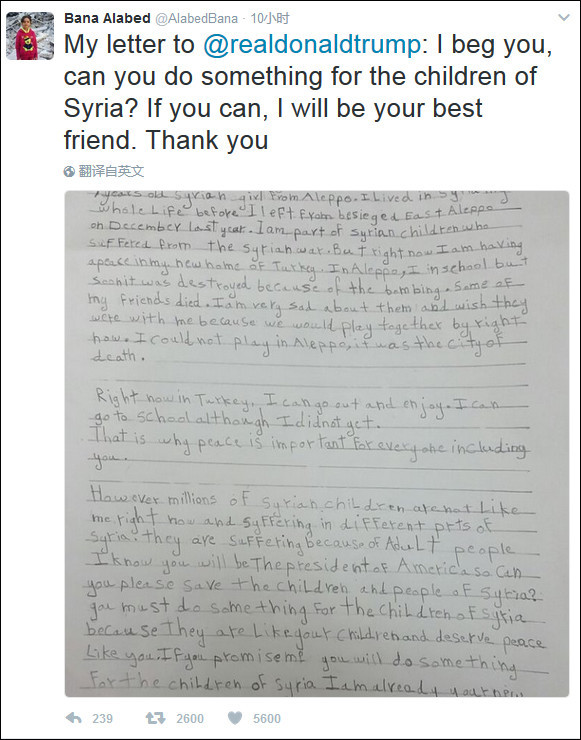 Bana Alabed @AlabedBana · 10小时
My letter to @realdonaldtrump: I beg you,
can you do something for the children of
Syria? If you can, I will be your best
friend. Thank you
翻译自英文
years old Syrian girl from Aleppo. I Lived in
whole Life before I left from besieged East Aleppo
on December last year. I am part of Syrian children who
suffered from the Syrian war. But right now I am having
a peace in my new home of Turkey. In Aleppo, I in school but
soon it was destroyed because of the bombing. Some of
my friends died. I am very sad about them and wish they
were with me because we would play together by right
now. I could not play in Aleppo, it was the city of
death.
Right now in Turkey, I can go out and enjoy. I can
go to school although I did not yet.
That is why peace is important for everyone including
you.
However millions of Syrian children are not Like
me right now and syffering in different prts of
Syria. they are suffering because of Adult people
I know you will be The president of America so Can
you please save the children and people of Syria?
you must do something for the children of Syria
because They are Like your Children and deserve peace
Like you. If you promise me you will do something
for the children of Syria I am already your new
239 2600 5600